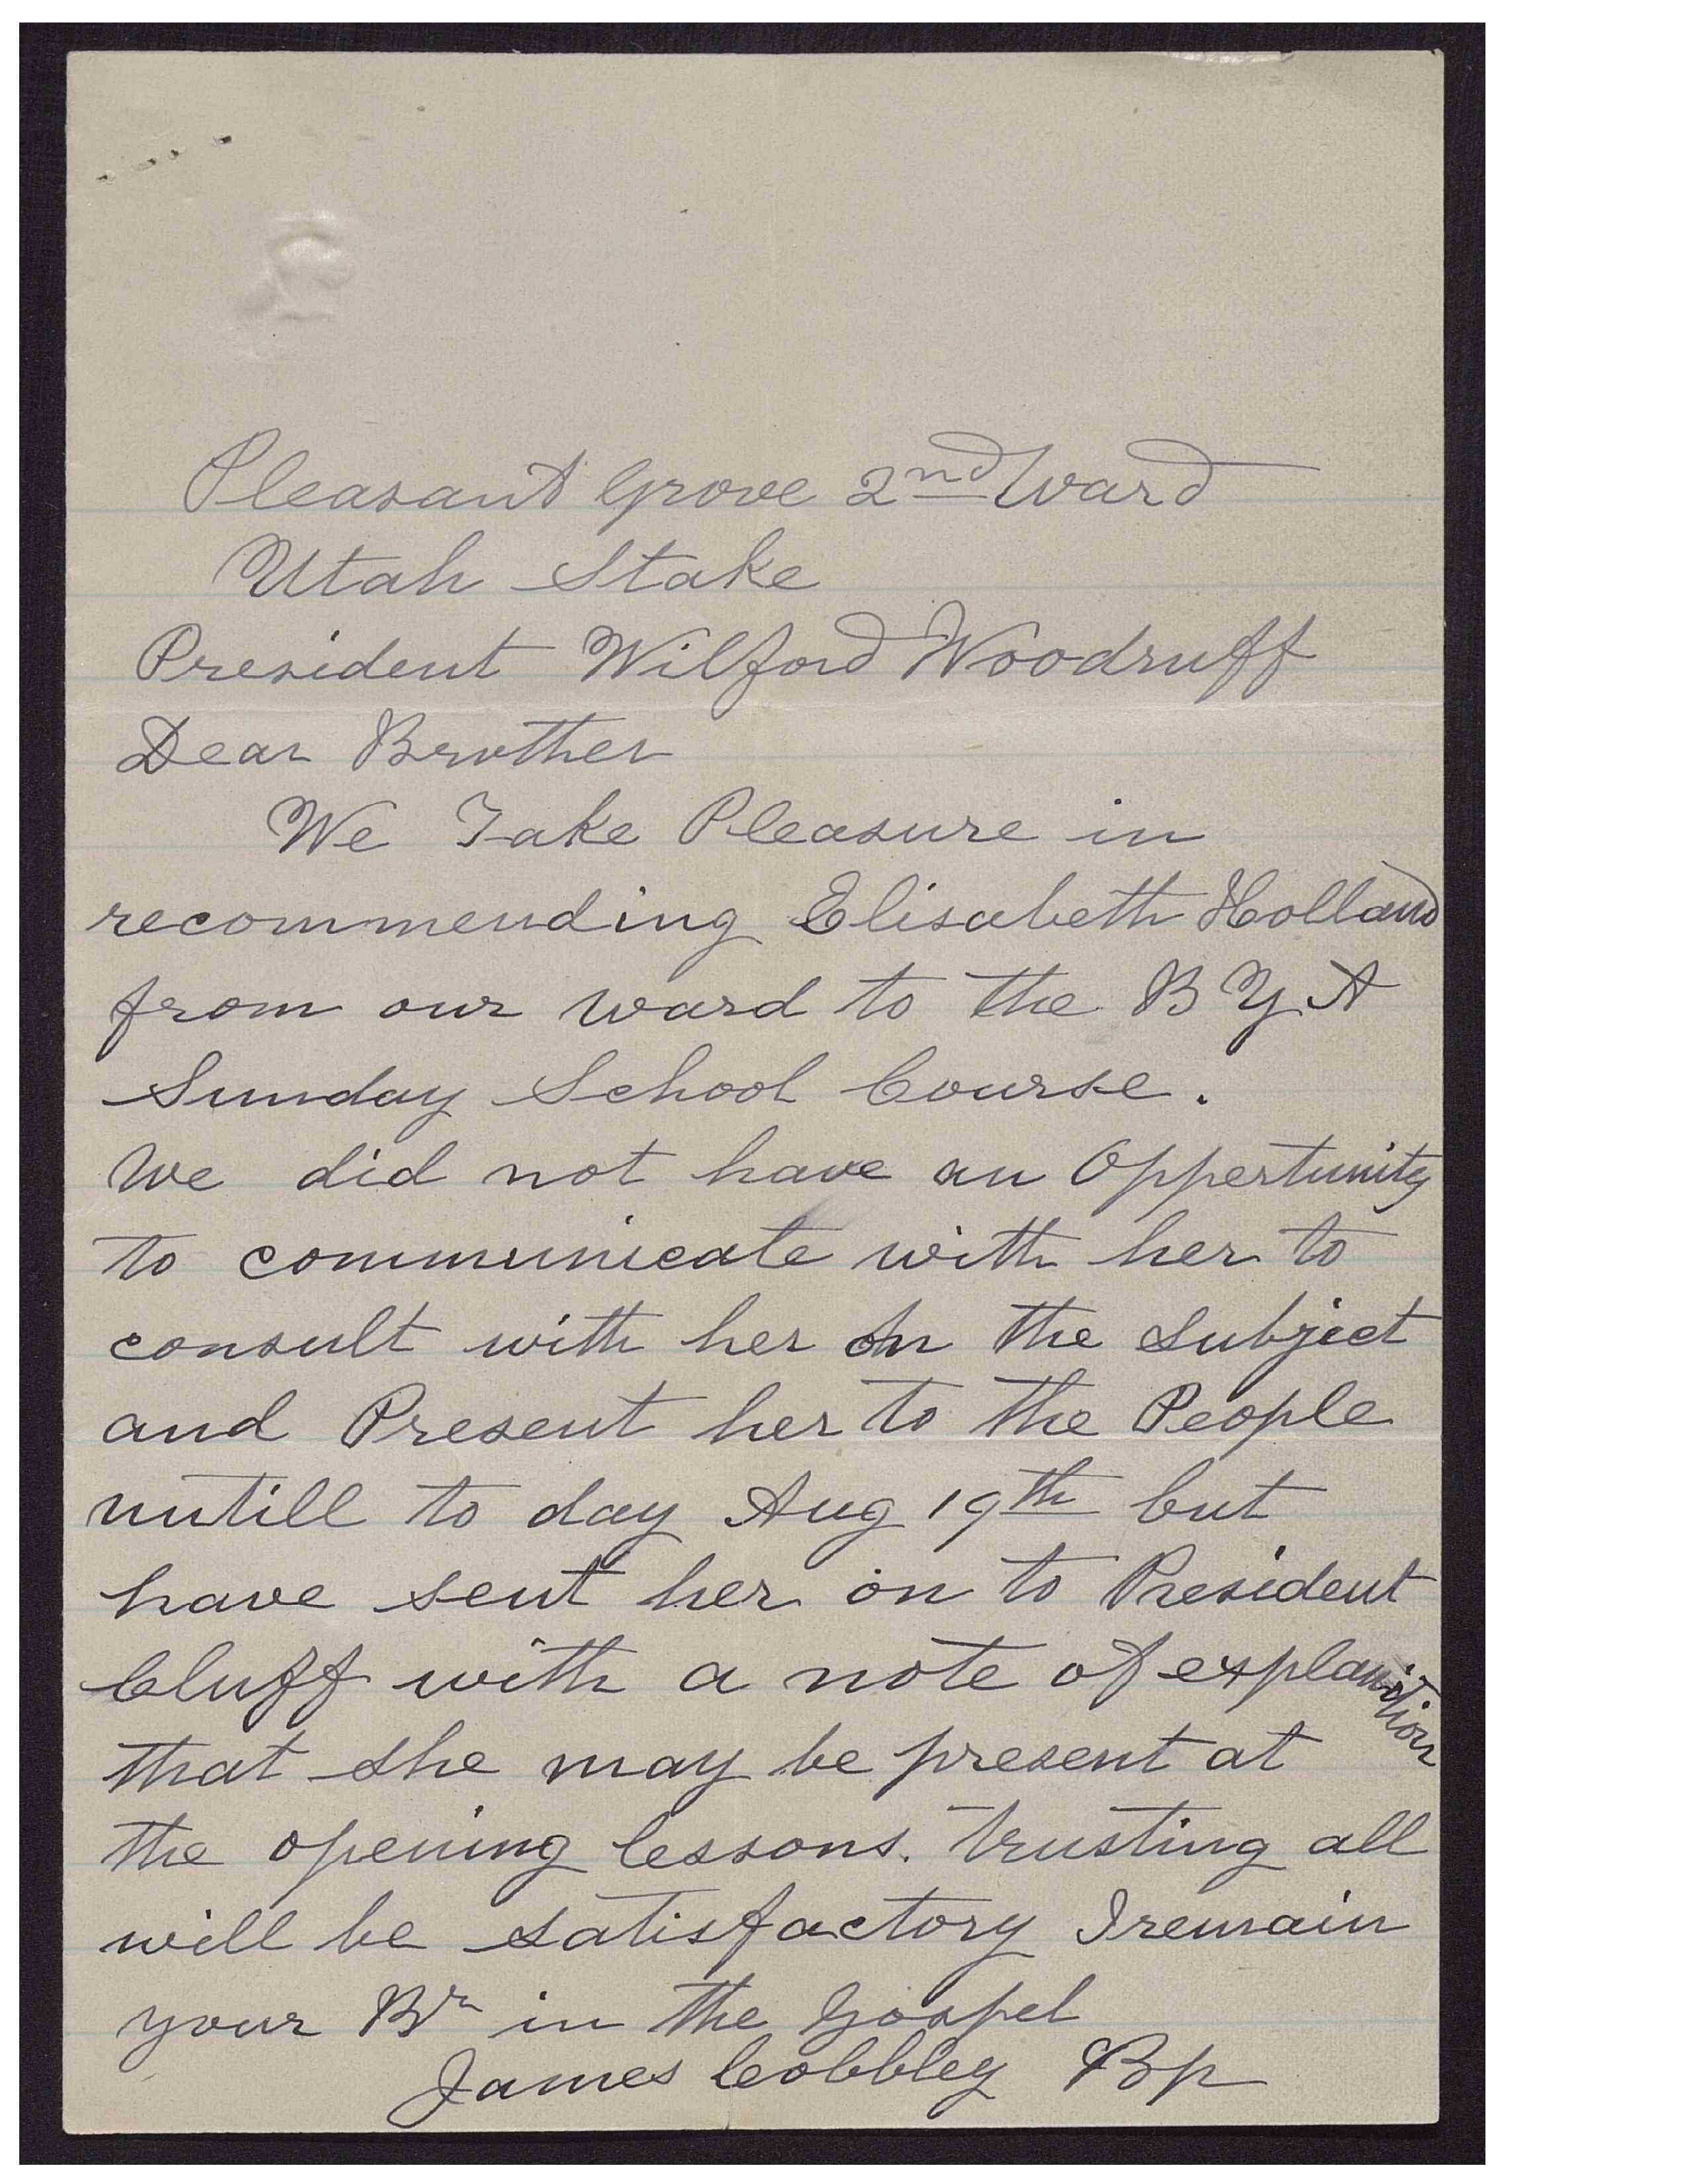 Pleasant Grove 2nd Ward
Utah Stake
President Wilford Woodruff
Dear Brother
We Take Pleasure in
recommending Elisabeth Holland
from our ward to the B Y A
Sunday School Course.
We did not have an Oppertunity
to communicate with her to
consult with her on the subject
and Present her to the People
untill to day Aug 19th but
have sent her on to President
Cluff with a note of explanition
that she may be present at
the opening lessons. trusting all
will be satisfactory I remain
your Br in the Gospel
James Cobbley Bp